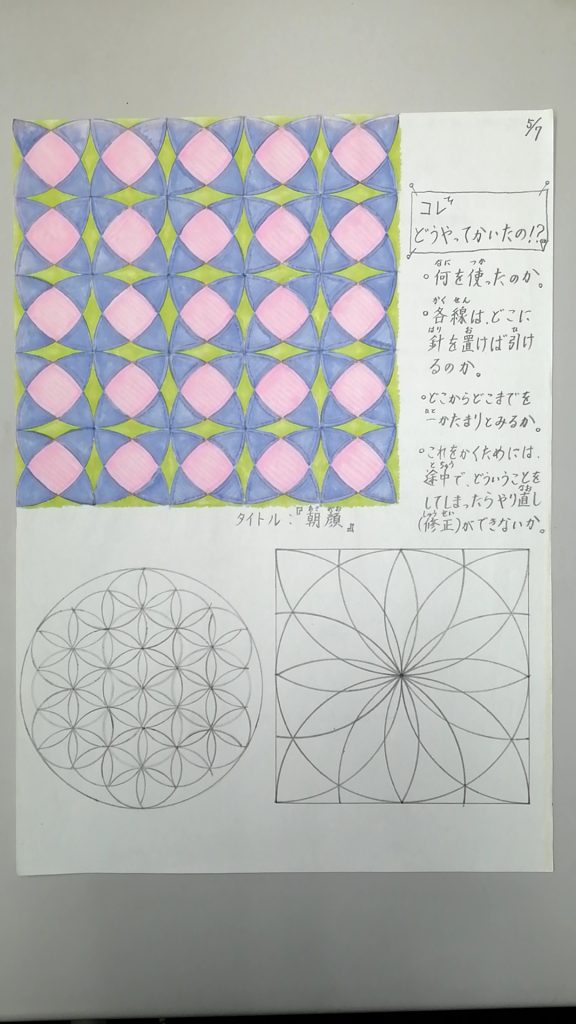 5/7
コレ
どうやってかいたの!?
。何を使ったのか。
。各線は、どこに
針を置けば引け
るのか。
。どこからどこまでを
一かたまりとみるか。
。これをかくためには、
途中で、どういうことを
してしまったらやり直し
(修正)ができないか。
タイトル:『朝顔』